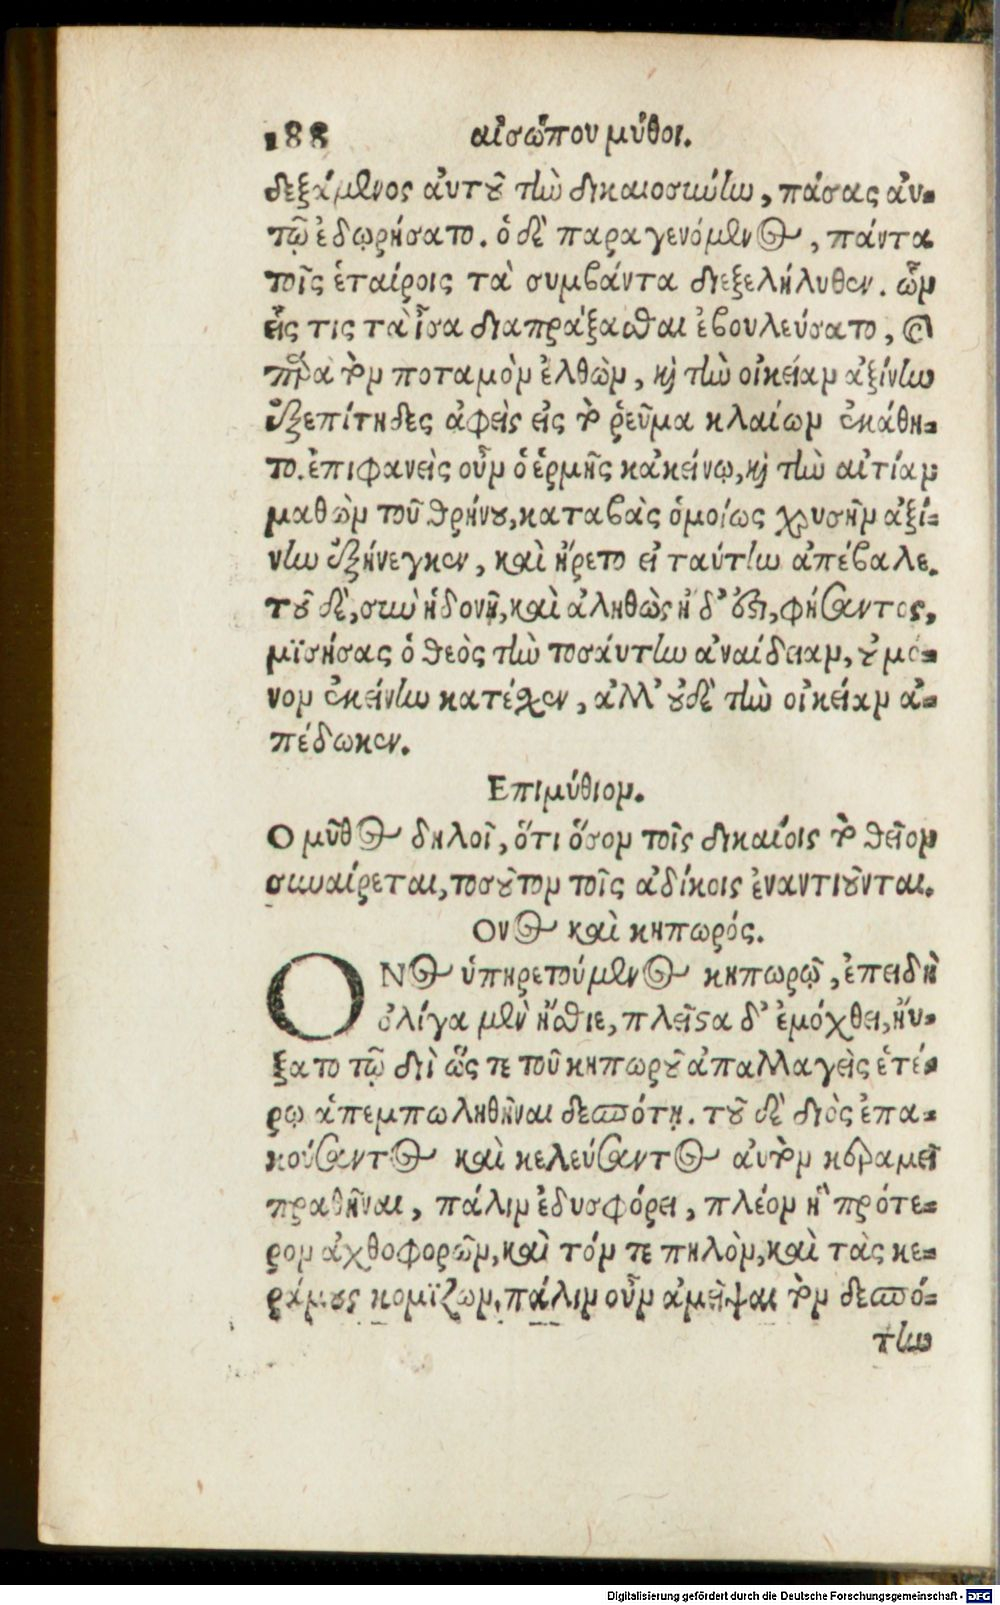 188 αἰσώπου μῦθοι.
δεξάμενος αὐτοῦ τὴν δικαιοσύνην, πάσας αὐ-
τῷ ἐδωρήσατο. ὁ δὲ παραγενόμενος, πάντα
τοῖς ἑταίροις τὰ συμβάντα διεξελήλυθεν. ὧν
εἷς τις τὰ ἶσα διαπράξασθαι ἐβουλεύσατο, καὶ
παρὰ τὸν ποταμὸν ἐλθὼν, καὶ τὴν οἰκείαν ἀξίνην
ἐξεπίτηδες ἀφεὶς εἰς τὸ ῥεῦμα κλαίων ἐκάθη-
το. ἐπιφανεὶς οὖν ὁ ἑρμῆς κἀκείνῳ, καὶ τὴν αἰτίαν
μαθὼν τοῦ θρήνου, καταβὰς ὁμοίως χρυσῆν ἀξί-
νην ἐξήνεγκεν, καὶ ἤρετο εἰ ταύτην ἀπέβαλε.
τοῦ δὲ, σὺν ἡδονῇ, καὶ ἀληθῶς ἥδ' ἐστι, φήσαντος,
μϊσήσας ὁ θεὸς τὴν τοσάυτην ἀναίδειαν, οὐ μό-
νον ἐκείνην κατέσχεν, ἀλλ' οὐδὲ τὴν οἰκείαν ἀ-
πέδωκεν.
Επιμύθιον.
Ο μῦθος δηλοῖ, ὅτι ὅσον τοῖς δικαίοις τὸ θεῖον
συναίρεται, τοσοῦτον τοῖς ἀδίκοις ἐναντιοῦνται.
Ονος καὶ κηπωρός.
ΟΝος ὑπηρετούμενος κηπωρῷ, ἐπειδὴ
ὀλίγα μὲν ἤσθιε, πλεῖστα δ' ἐμόχθει, ἤυ-
ξατο τῷ διὶ ὥς τε τοῦ κηπωροῦ ἀπαλλαγεὶς ἑτέ-
ρῳ ἀπεμπωληθῆναι δεσπότῃ. τοῦ δὲ διὸς ἐπα-
κούσαντος καὶ κελεύσαντος αὐτὸν κεραμεῖ
πραθῆναι, πάλιν ἐδυσφόρει, πλέον ἢ πρότε-
ρον ἀχθοφορῶν, καὶ τόν τε πηλὸν, καὶ τὰς κε-
ράμους κομϊζων, πάλιν οὖν ἀμεῖψαι τὸν δεσπό-
την
Digitalisierung gefördert durch die Deutsche Forschungsgemeinschaft - DFG